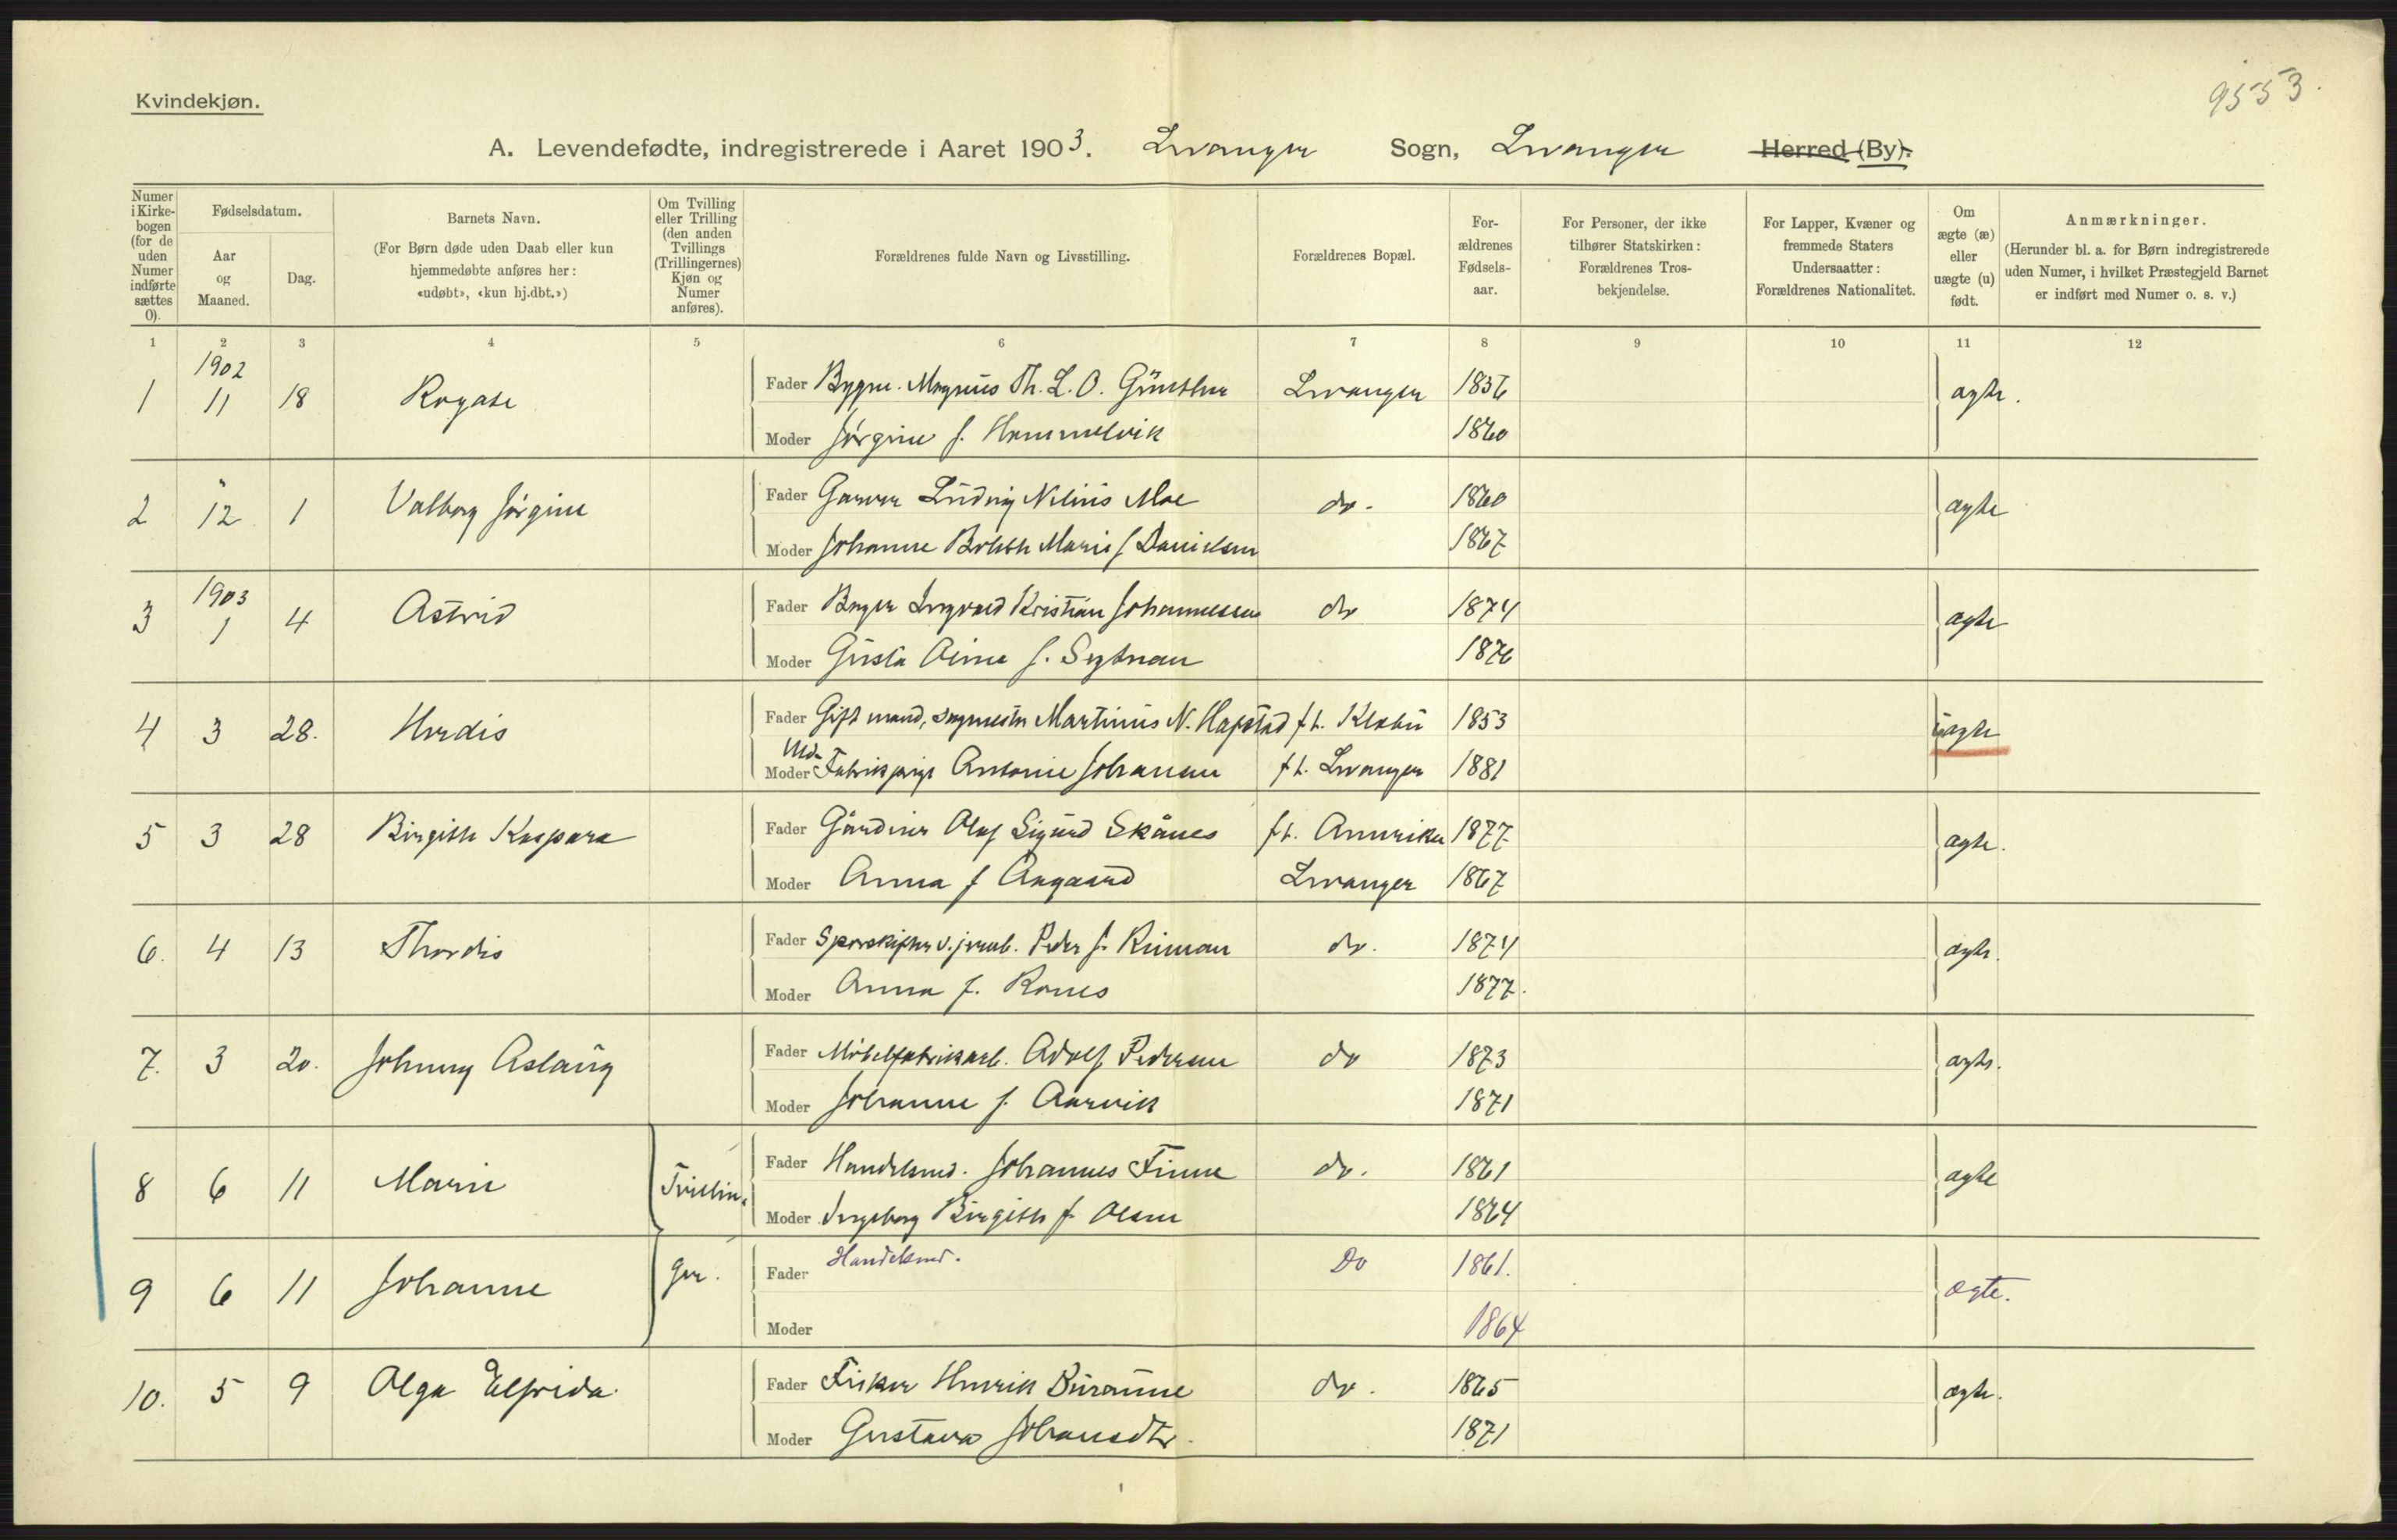 9553.
Kvindekjøn.
A. Levendefødte, indregistrerede i Aaret 1903. Levanger Sogn, Levanger Herred (By).
Numer i Kirkebogen (for de uden Numer indførte sættes 0).
Fødselsdatum.
Aar og Maaned.
Dag.
Barnets Navn.
(For Børn døde uden Daab eller kun hjemmedøbte anføres her: «udøbt», «kun hj.dbt.»)
Om Tvilling eller Trilling (den anden Tvillings (Trillingernes) Kjøn og Numer anføres).
Forældrenes fulde Navn og Livsstilling.
Forældrenes Bopæl.
Forældrenes Fødselsaar.
For Personer, der ikke tilhører Statskirken: Forældrenes Trosbekjendelse.
For Lapper, Kvæner og fremmede Staters Undersaatter: Forældrenes Nationalitet.
Om ægte (æ) eller uægte (u) født.
Anmærkninger.
(Herunder bl. a. for Børn indregistrerede uden Numer, i hvilket Præstegjeld Barnet er indført med Numer o. s. v.)
1 2 3 4 5 6 7 8 9 10 11 12
1 1902 11 18 Rogate Fader Bygm. Magnus Th. L. O. Günther Levanger 1836 ægte.
Moder Jørgine f. Hammelvik 1860
2 " 12 1 Valborg Jørgine Fader Garver Ludvig Nilius Moe do. 1860 ægte
Moder Johanne Bolette Marie f Danielsen 1867
3 1903 1 4 Astrid Fader Bager Ingvard Kristian Johannessen do 1874 ægte
Moder Gusta Aine f. 1876
4 3 28. Herdis Fader Gift mand, Martinus N. Hapstad f.t. Klæbu 1853 uægte
Moder Fabrikspige Antonie Johansen f.t. Levanger 1881
5 3 28 Birgitte Kaspara Fader Gårdeier Olaf Sigurd Skånes f.t. Amerika 1877 ægte.
Moder Anna f Aagaard Levanger 1867
6. 4 13 Thordis Fader Sporskifter v. jernb. Peder J. Rinnan do. 1874 ægte.
Moder Anna f. Rones 1877.
7. 3 20. Johnny Aslaug Fader Møbelfabrikarb. Adolf Pedersen do 1873 ægte.
Moder Johanne f. Aarvik 1871
8 6 11 Marie Tvillin- Fader Handelsmd. Johannes Finne do. 1861 ægte
Moder Ingeborg Birgitte f. Olsen 1864
9 6 11 Johanne ger. Fader Handelsmd. Do 1861. ægte.
Moder 1864
10. 5 9 Olga Elfrida. Fader Fisker Henrik Buraune do. 1865 ægte.
Moder Gustava Johansdtr. 1871